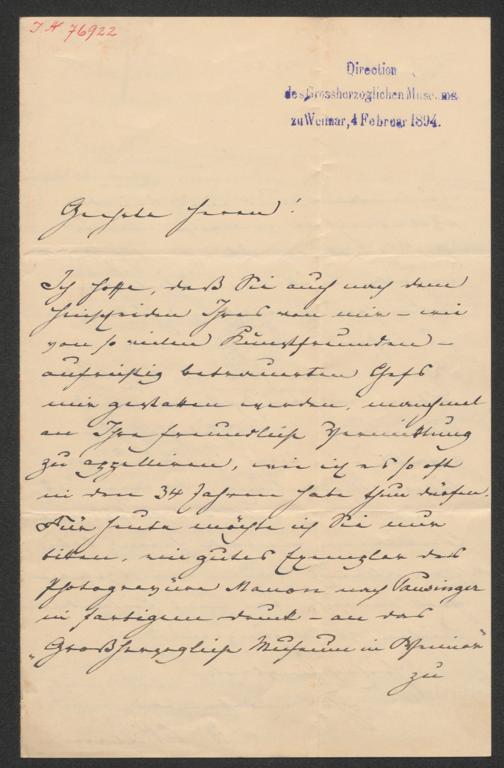 J. N 76922
Direction
des Grossherzoglichen Museums
zu Weimar, 4 Februar 1894.
Geehrte Herren!
Ich hoffe, daß Sie auch nach dem
Hinscheiden Ihres von mir – wie
von so vielen Kunstfreunden –
aufrichtig betrauerten Chefs
mir gestatten werden, manchmal
an Ihre freundliche Vermittlung
zu appelliren, wie ich es so oft
in den 34 Jahren habe thun dürfen.
Für heute möchte ich Sie nur
bitten, ein gutes Exemplar der
Photogravüre Manon nach Pausinger
in farbigem Druck – an das
„Großherzogliche Museum in Weimar“
zu